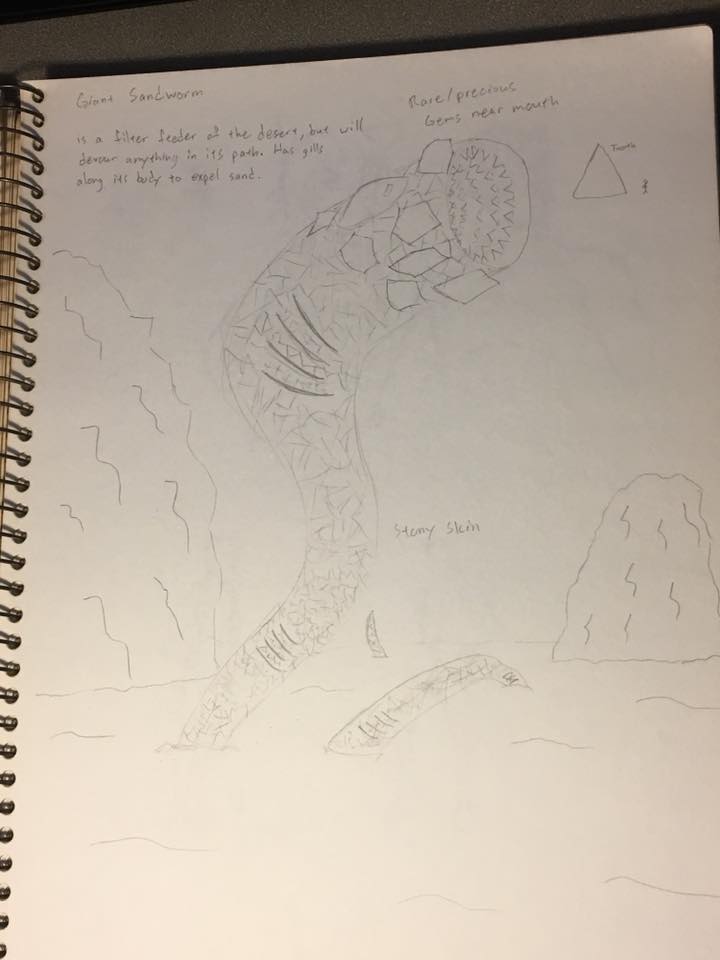 Giant Sandworm
is a filter feeder of the desert, but will
devour anything in its path. Has gills
along its body to expel sand.
Rare/precious
Gems near mouth
Tooth
Stony Skin